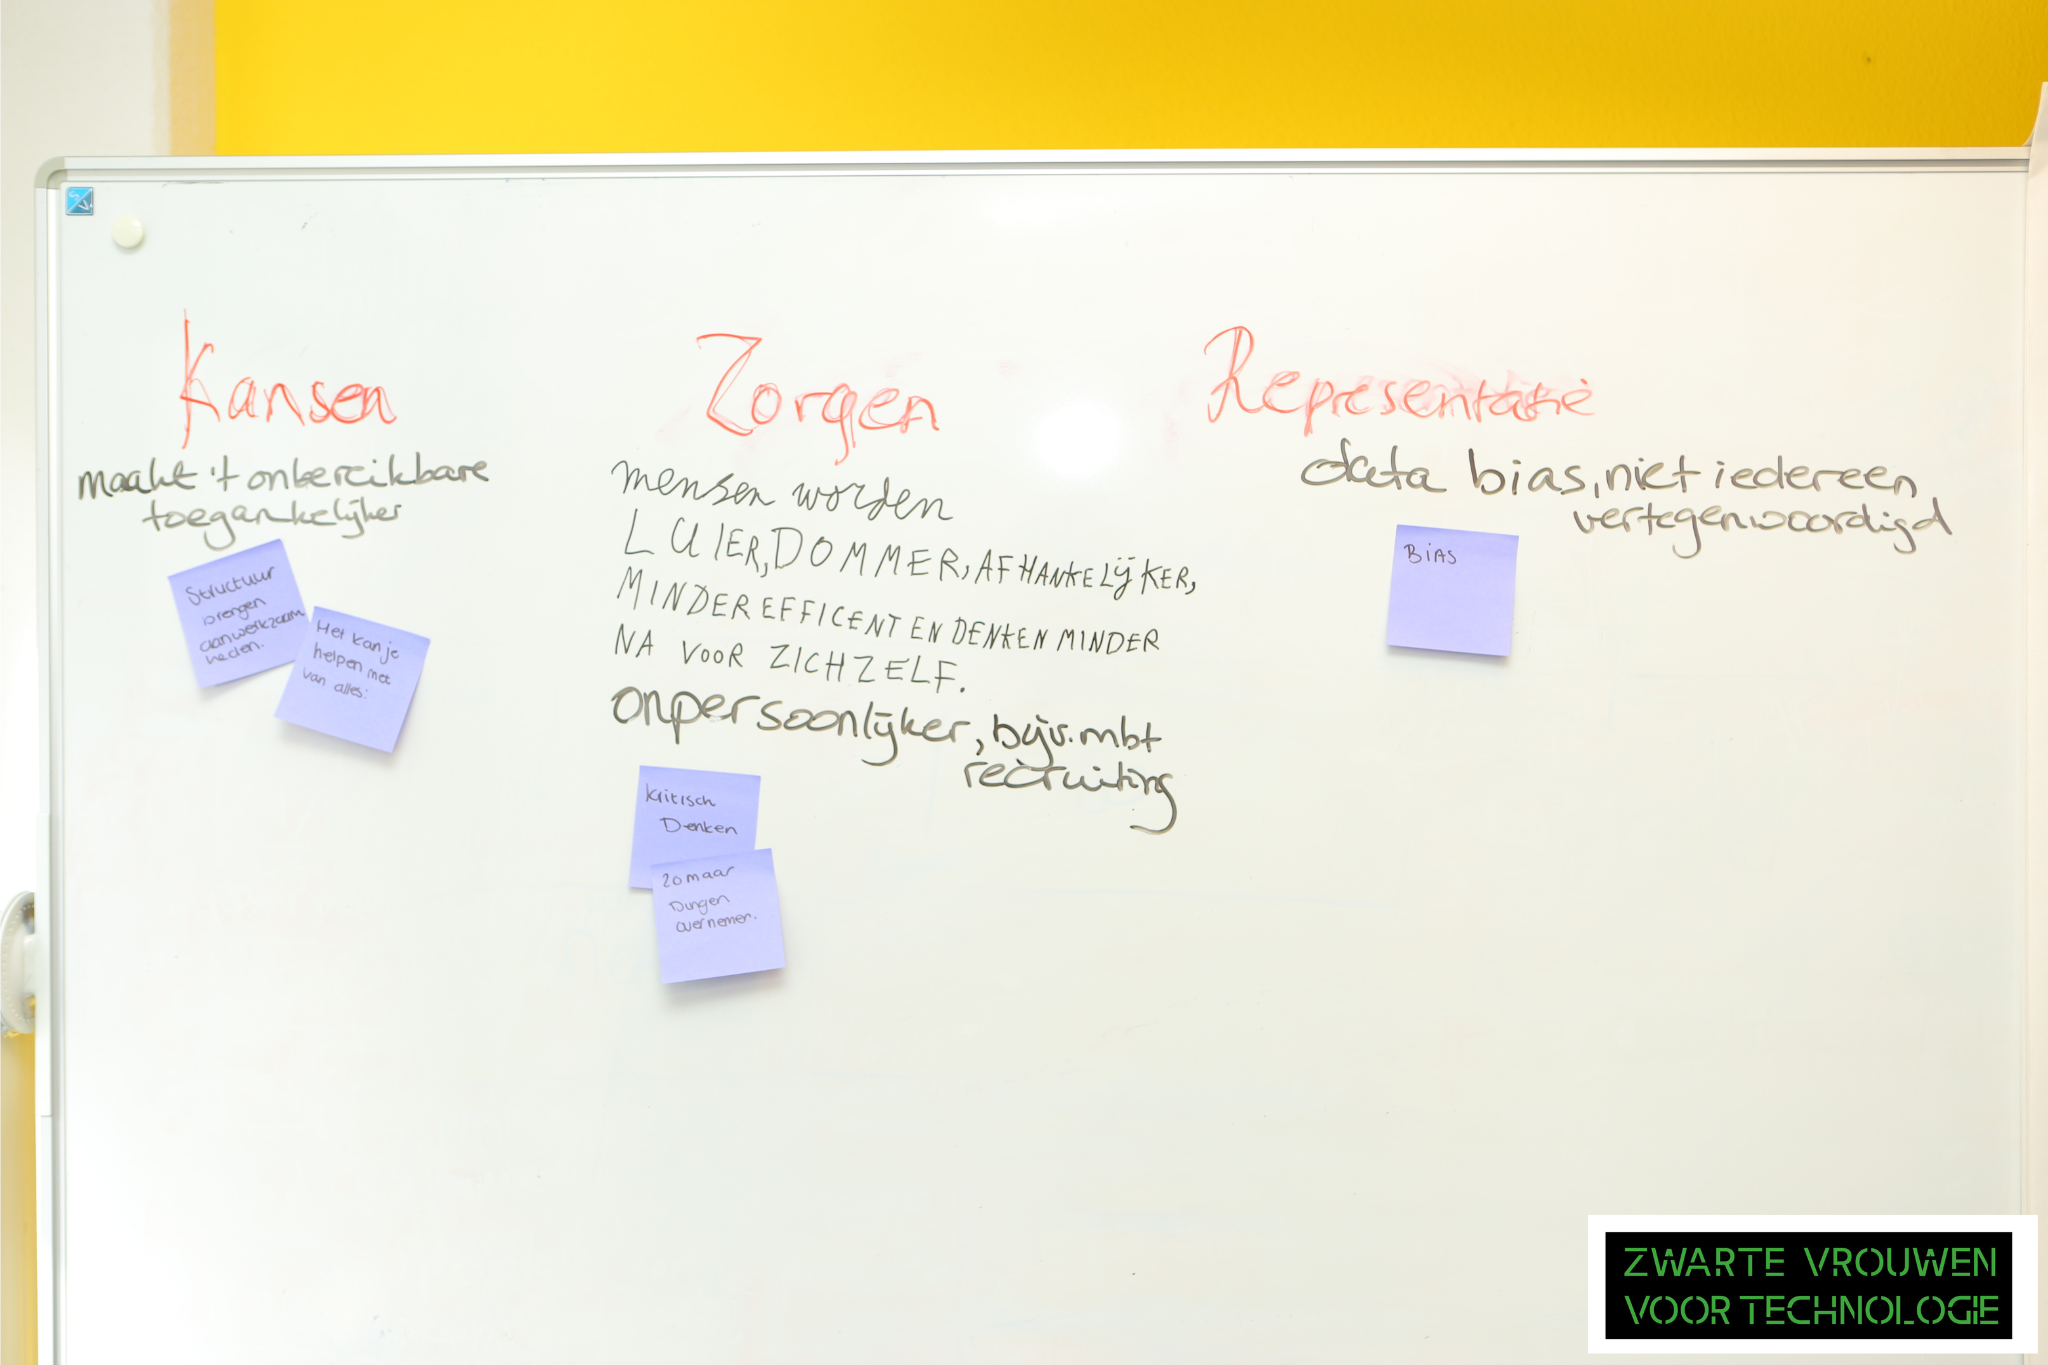 Kansen
maakt 't onbereikbare
toegankelijker
Structuur
brengen
aan werkzaam
heden.
Het kan je
helpen met
van alles:
Zorgen
mensen worden
LUIER, DOMMER, AFHANKELIJKER,
MINDER EFFICENT EN DENKEN MINDER
NA VOOR ZICHZELF.
onpersoonlijker, bijv. mbt
recruiting
Kritisch
Denken
Zomaar
Dingen
overnemen.
Representatie
data bias, niet iedereen
vertegenwoordigd
BIAS
ZWARTE VROUWEN
VOOR TECHNOLOGIE